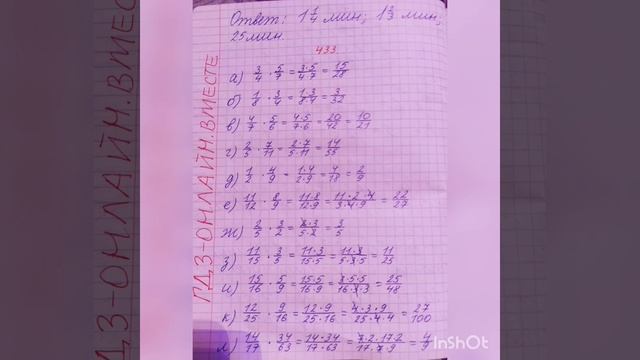 Ответ: 1 1/4 мин; 1 2/3 мин;
25 мин.
433.
а) 3/4 · 5/7 = 3·5/4·7 = 15/28
б) 1/8 · 3/4 = 1·3/8·4 = 3/32
в) 4/7 · 5/6 = 4·5/7·6 = 20/42 = 10/21
г) 2/5 · 7/11 = 2·7/5·11 = 14/55
д) 1/2 · 4/9 = 1·4/2·9 = 4/18 = 2/9
е) 11/12 · 8/9 = 11·8/12·9 = 11·2·4/3·4·9 = 22/27
ж) 2/5 · 3/2 = 2·3/5·2 = 3/5
з) 11/15 · 3/5 = 11·3/15·5 = 11·3/5·3·5 = 11/25
и) 15/16 · 5/9 = 15·5/16·9 = 3·5·5/16·3·3 = 25/48
к) 12/25 · 9/16 = 12·9/25·16 = 4·3·9/25·4·4 = 27/100
л) 14/17 · 34/63 = 14·34/17·63 = 7·2·17·2/17·7·9 = 4/9
ГДЗ-ОНЛАЙН.ВМЕСТЕ
InShOt